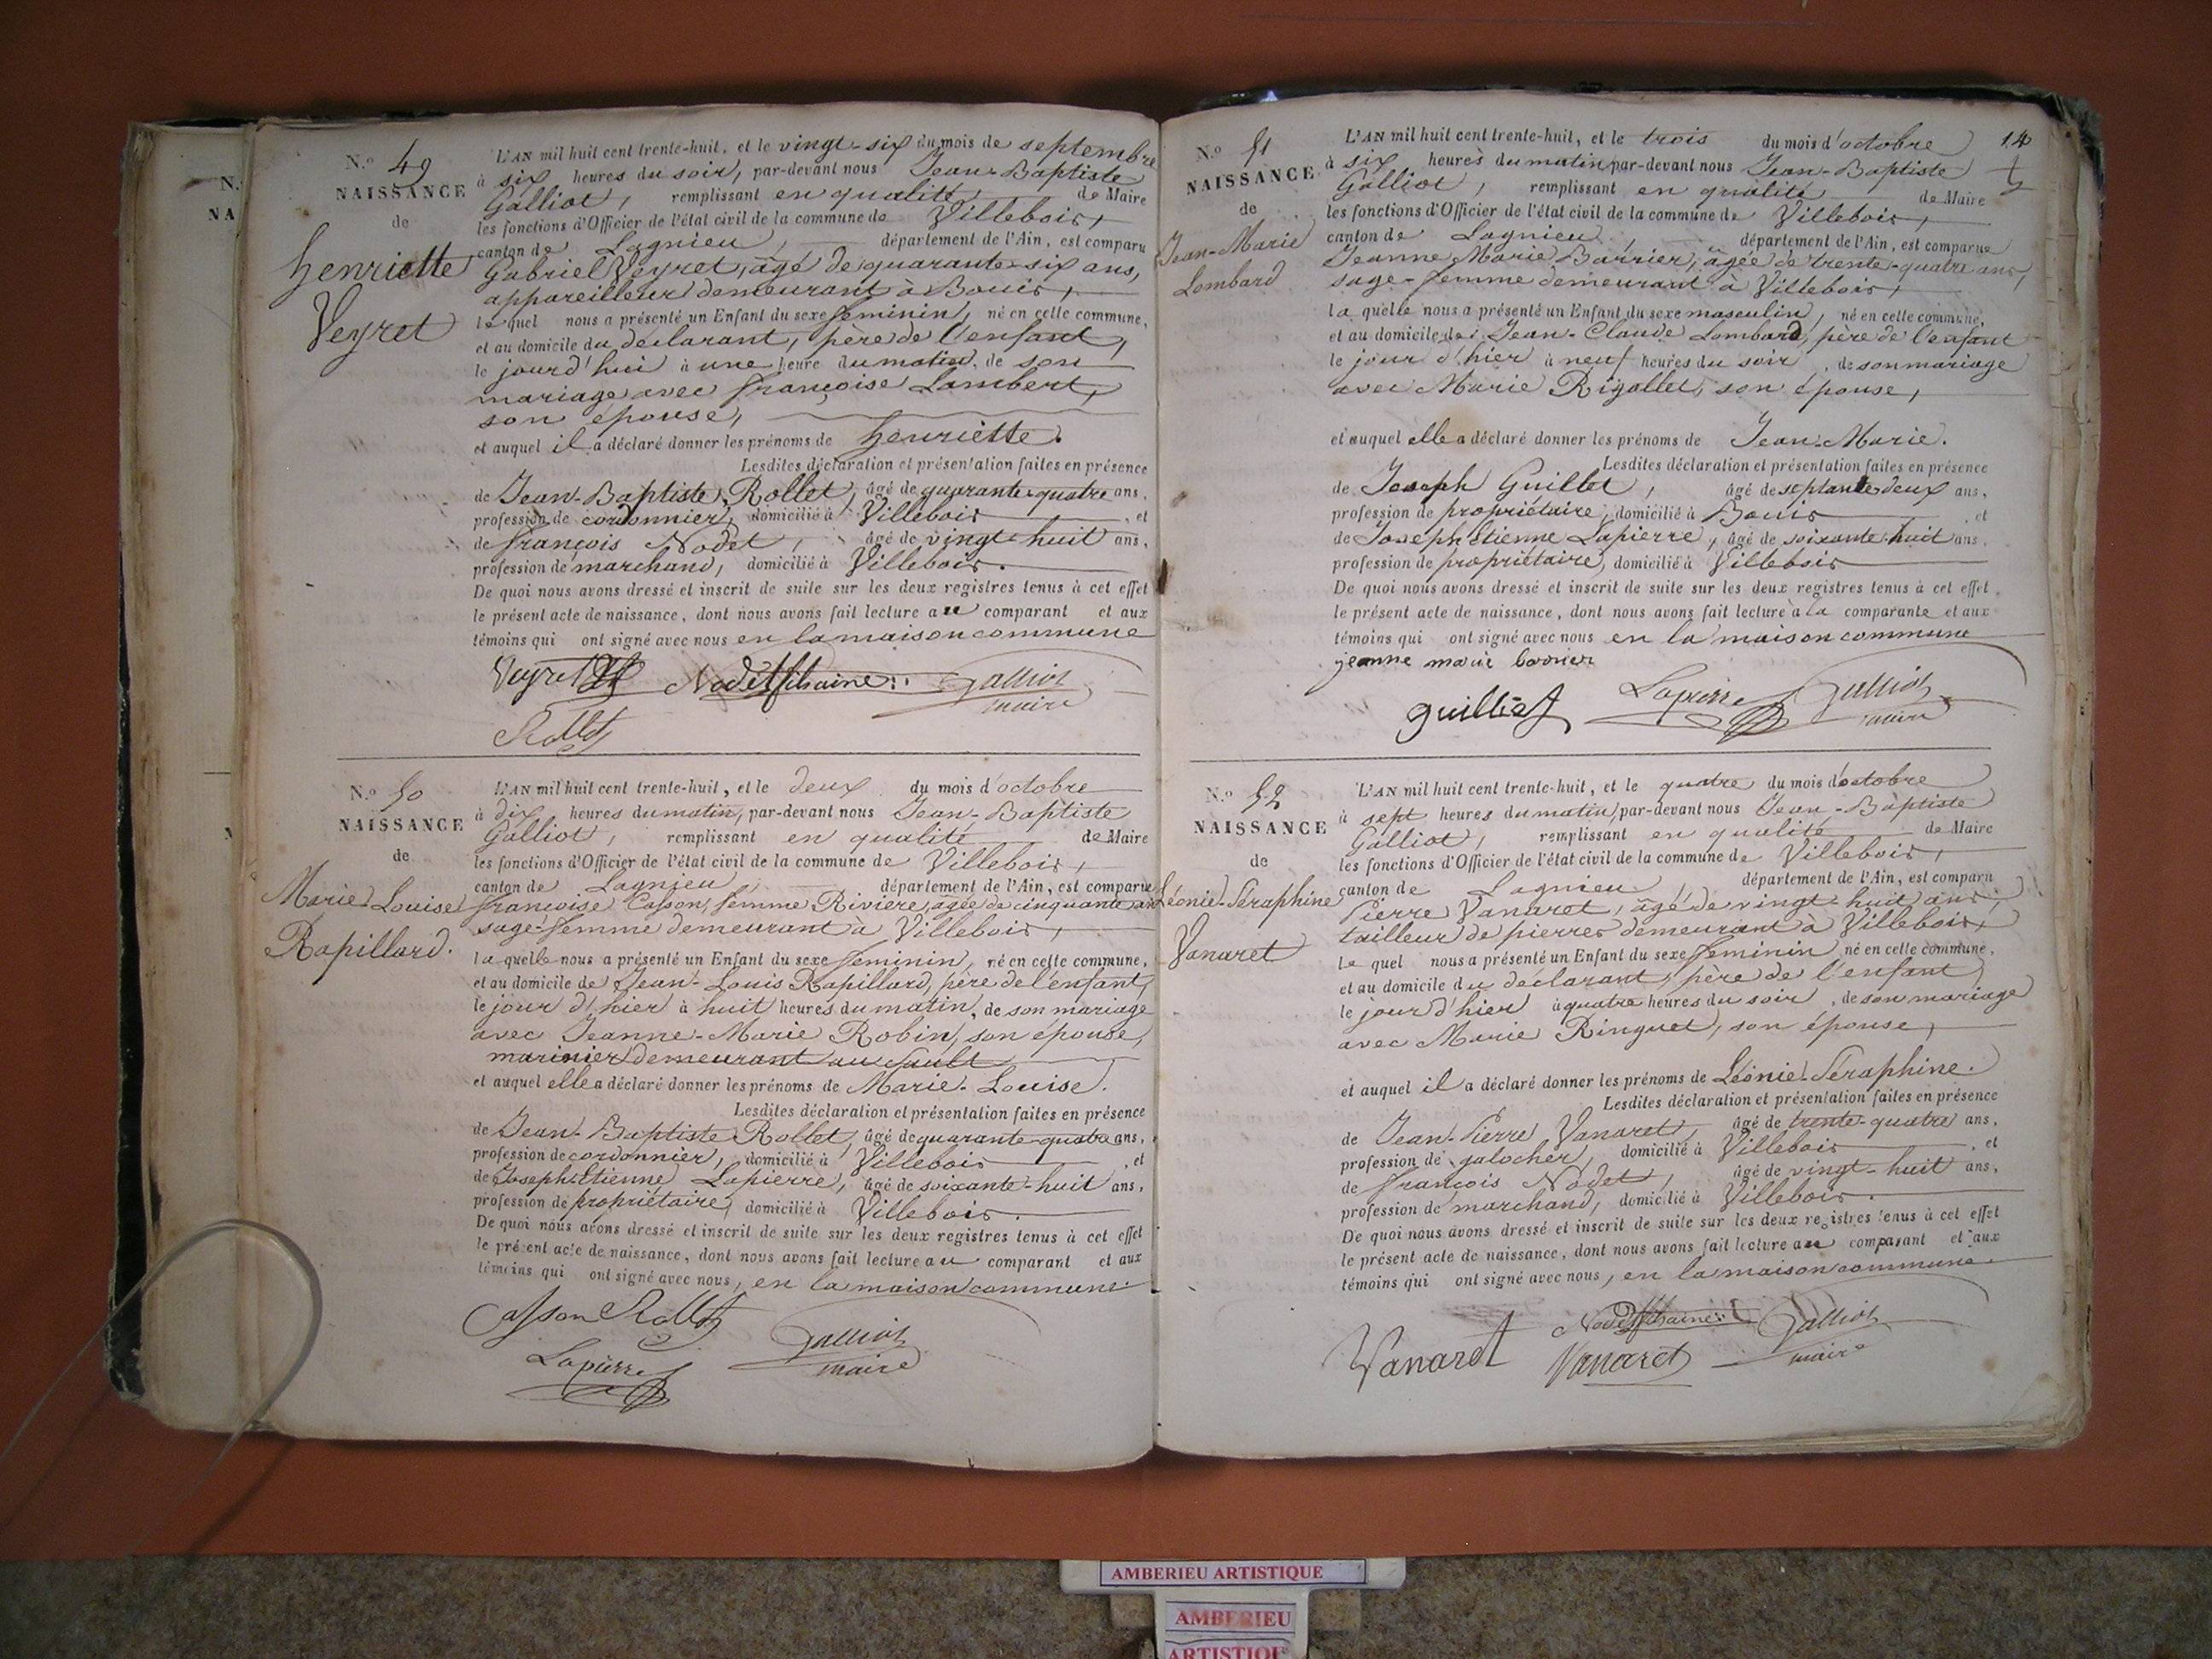 N.
NA
N.º 49
NAISSANCE
de
henriette
Veyret
L'AN mil huit cent trente-huit, et le vingt-six du mois de septembre
à six heures du soir, par-devant nous Jean-Baptiste
Galliot, remplissant en qualité de Maire
les fonctions d'Officier de l'état civil de la commune de Villebois,
canton de Lagnieu, département de l'Ain, est comparu
Gabriel Veyret, âgé de quarante-six ans,
appareilleur demeurant à Bouis,
lequel nous a présenté un Enfant du sexe feminin, né en cette commune,
et au domicile du déclarant, père de l'enfant,
le jourd'hui à une heure du matin, de son
mariage avec françoise Lambert,
son épouse,
et auquel il a déclaré donner les prénoms de henriette.
Lesdites déclaration et présentation faites en présence
de Jean-Baptiste Rollet, âgé de quarante-quatre ans,
profession de cordonnier, domicilié à Villebois, et
de françois Nodet, âgé de vingt-huit ans,
profession de marchand, domicilié à Villebois.
De quoi nous avons dressé et inscrit de suite sur les deux registres tenus à cet effet
le présent acte de naissance, dont nous avons fait lecture au comparant et aux
témoins qui ont signé avec nous en la maison commune
Veyret Nodet Galliot
maire
Rollet
N.º 50
NAISSANCE
de
Marie-Louise
Rapillard.
L'AN mil huit cent trente-huit, et le deux du mois d'octobre
à dix heures du matin, par-devant nous Jean-Baptiste
Galliot, remplissant en qualité de Maire
les fonctions d'Officier de l'état civil de la commune de Villebois,
canton de Lagnieu, département de l'Ain, est comparue
françoise Casson, femme Riviere, âgée de cinquante ans
sage-femme demeurant à Villebois,
la quelle nous a présenté un Enfant du sexe feminin, né en cette commune,
et au domicile de Jean-Louis Rapillard, père de l'enfant,
le jour d'hier à huit heures du matin, de son mariage
avec Jeanne-Marie Robin, son épouse,
marinier demeurant au Sault
et auquel elle a déclaré donner les prénoms de Marie-Louise.
Lesdites déclaration et présentation faites en présence
de Jean-Baptiste Rollet, âgé de quarante-quatre ans,
profession de cordonnier, domicilié à Villebois, et
de Joseph Etienne Lapierre, âgé de soixante-huit ans,
profession de propriétaire, domicilié à Villebois.
De quoi nous avons dressé et inscrit de suite sur les deux registres tenus à cet effet
le présent acte de naissance, dont nous avons fait lecture au comparant et aux
témoins qui ont signé avec nous, en la maison commune.
Casson Rollet
Galliot
Lapierre maire
14
N.º 51
NAISSANCE
de
Jean-Marie
Lombard
L'AN mil huit cent trente-huit, et le trois du mois d'octobre
à six heures du matin, par-devant nous Jean-Baptiste
Galliot, remplissant en qualité de Maire
les fonctions d'Officier de l'état civil de la commune de Villebois,
canton de Lagnieu département de l'Ain, est comparue
Jeanne Marie Barrier, âgée de trente-quatre ans,
sage-femme demeurant à Villebois,
la quelle nous a présenté un Enfant du sexe masculin, né en cette commune,
et au domicile de Jean-Claude Lombard, père de l'enfant
le jour d'hier à neuf heures du soir, de son mariage
avec Marie Rigollet, son épouse,
et auquel elle a déclaré donner les prénoms de Jean-Marie.
Lesdites déclaration et présentation faites en présence
de Joseph Guillet, âgé de septante-deux ans,
profession de propriétaire, domicilié à Bouis, et
de Joseph Etienne Lapierre, âgé de soixante-huit ans,
profession de propriétaire, domicilié à Villebois
De quoi nous avons dressé et inscrit de suite sur les deux registres tenus à cet effet
le présent acte de naissance, dont nous avons fait lecture à la comparante et aux
témoins qui ont signé avec nous en la maison commune
jeanne marie barrier
guilliet Lapierre Galliot
maire
N.º 52
NAISSANCE
de
Léonie-Séraphine
Vanaret
L'AN mil huit cent trente-huit, et le quatre du mois d'octobre
à sept heures du matin, par-devant nous Jean-Baptiste
Galliot, remplissant en qualité de Maire
les fonctions d'Officier de l'état civil de la commune de Villebois,
canton de Lagnieu, département de l'Ain, est comparu
Pierre Vanaret, âgé de vingt-huit ans,
tailleur de pierres demeurant à Villebois,
lequel nous a présenté un Enfant du sexe feminin né en cette commune,
et au domicile du déclarant, père de l'enfant
le jour d'hier à quatre heures du soir, de son mariage
avec Marie Ringuet, son épouse,
et auquel il a déclaré donner les prénoms de Léonie-Séraphine.
Lesdites déclaration et présentation faites en présence
de Jean-Pierre Vanaret, âgé de trente-quatre ans,
profession de galocher, domicilié à Villebois, et
de françois Nodet, âgé de vingt-huit ans,
profession de marchand, domicilié à Villebois.
De quoi nous avons dressé et inscrit de suite sur les deux registres tenus à cet effet
le présent acte de naissance, dont nous avons fait lecture au comparant et aux
témoins qui ont signé avec nous, en la maison commune.
Vanaret Nodet Galliot
Vanaret maire
AMBERIEU ARTISTIQUE
AMBERIEU
ARTISTIQUE